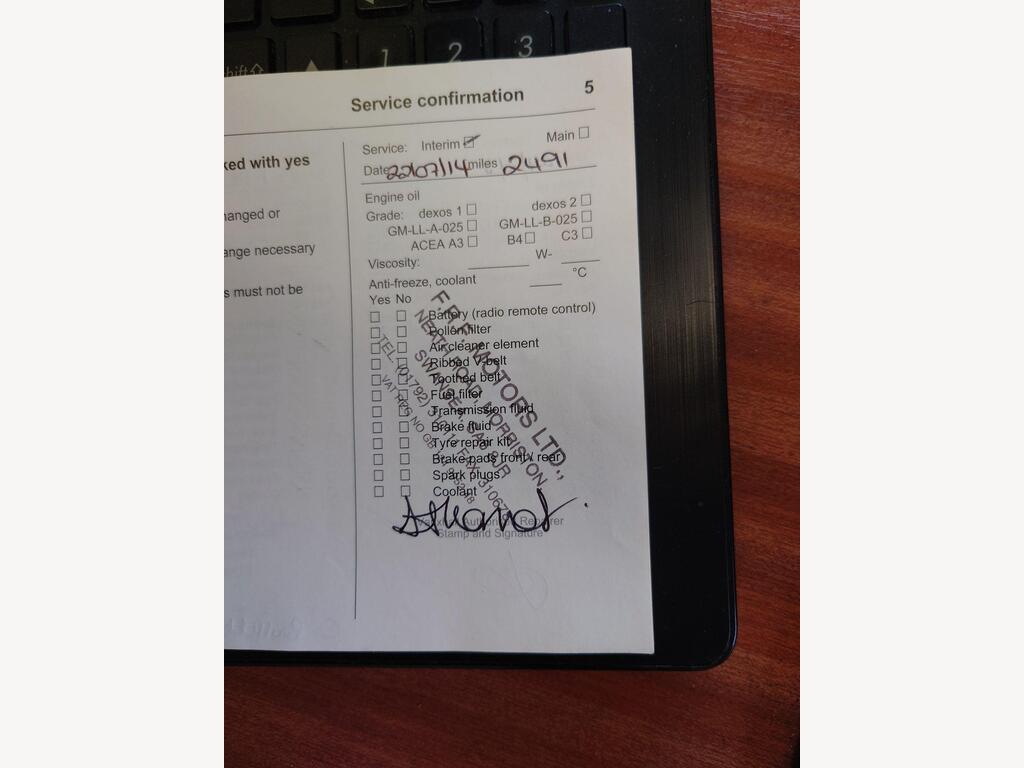 shift
1
2
3
Service confirmation 5
ked with yes
nanged or
ange necessary
s must not be
Service: Interim Main
Date 22/07/14 miles 2491
Engine oil
Grade: dexos 1 dexos 2
GM-LL-A-025 GM-LL-B-025
ACEA A3 B4 C3
Viscosity: W-
Anti-freeze, coolant °C
Yes No
Battery (radio remote control)
Pollen filter
Air cleaner element
Ribbed V-belt
Toothed belt
Fuel filter
Transmission fluid
Brake fluid
Tyre repair kit
Brake pads front / rear
Spark plugs
Coolant
MOTORS LTD.,
NEATH ROAD, MORRISTON
SWANSEA,
TEL: (01792)
VAT REG NO GB
Authorised Repairer
Stamp and Signature